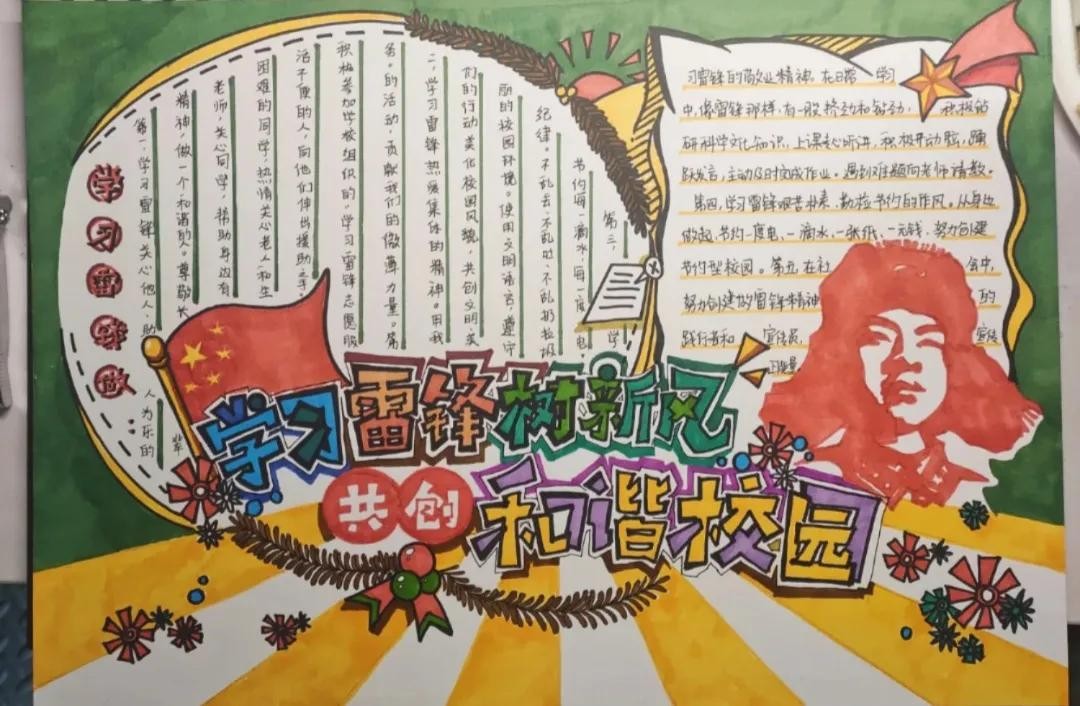 学习雷锋做
第一，学习雷锋关心他人，助人为乐的
精神，做一个和谐的人。尊敬长辈
老师，关心同学，帮助身边有
困难的同学，热情关心老人和生
活不便的人，向他们伸出援助之手。
积极参加学校组织的"学习雷锋志愿服
务"的活动，贡献我们的微薄力量。第
二，学习雷锋热爱集体的精神。用我
们的行动美化校园风貌，共创文明、美
丽的校园环境。使用文明语言，遵守
纪律。不乱去、不乱吐、不乱扔垃圾
节约每一滴水，每一度电，
第三，学
习雷锋的敬业精神，在日常学习
中，像雷锋那样，有一股挤劲和钻劲，积极钻
研科学文化知识，上课专心听讲，积极开动脑，踊
跃发言，主动及时完成作业。遇到难题向老师请教。
第四，学习雷锋艰苦朴素、勤俭节约的作风。从身边
做起，节约一度电、一滴水、一张纸、一元钱，努力创建
节约型校园。第五，在社会中，
努力创建做雷锋精神的
践行者和宣传员，宣传
正能量
学习雷锋树新风
共创和谐校园